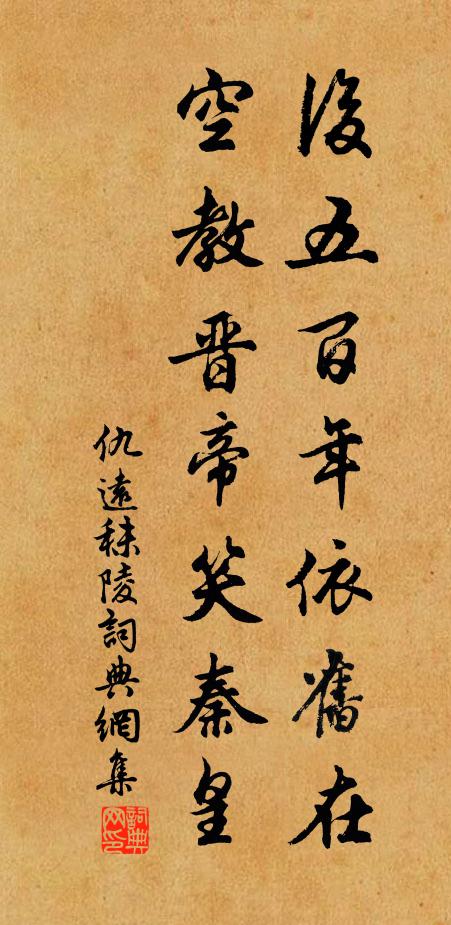 後五百年依舊在
空教晋帝笑秦皇
仇遠秣陵詞典網集
詞典網印